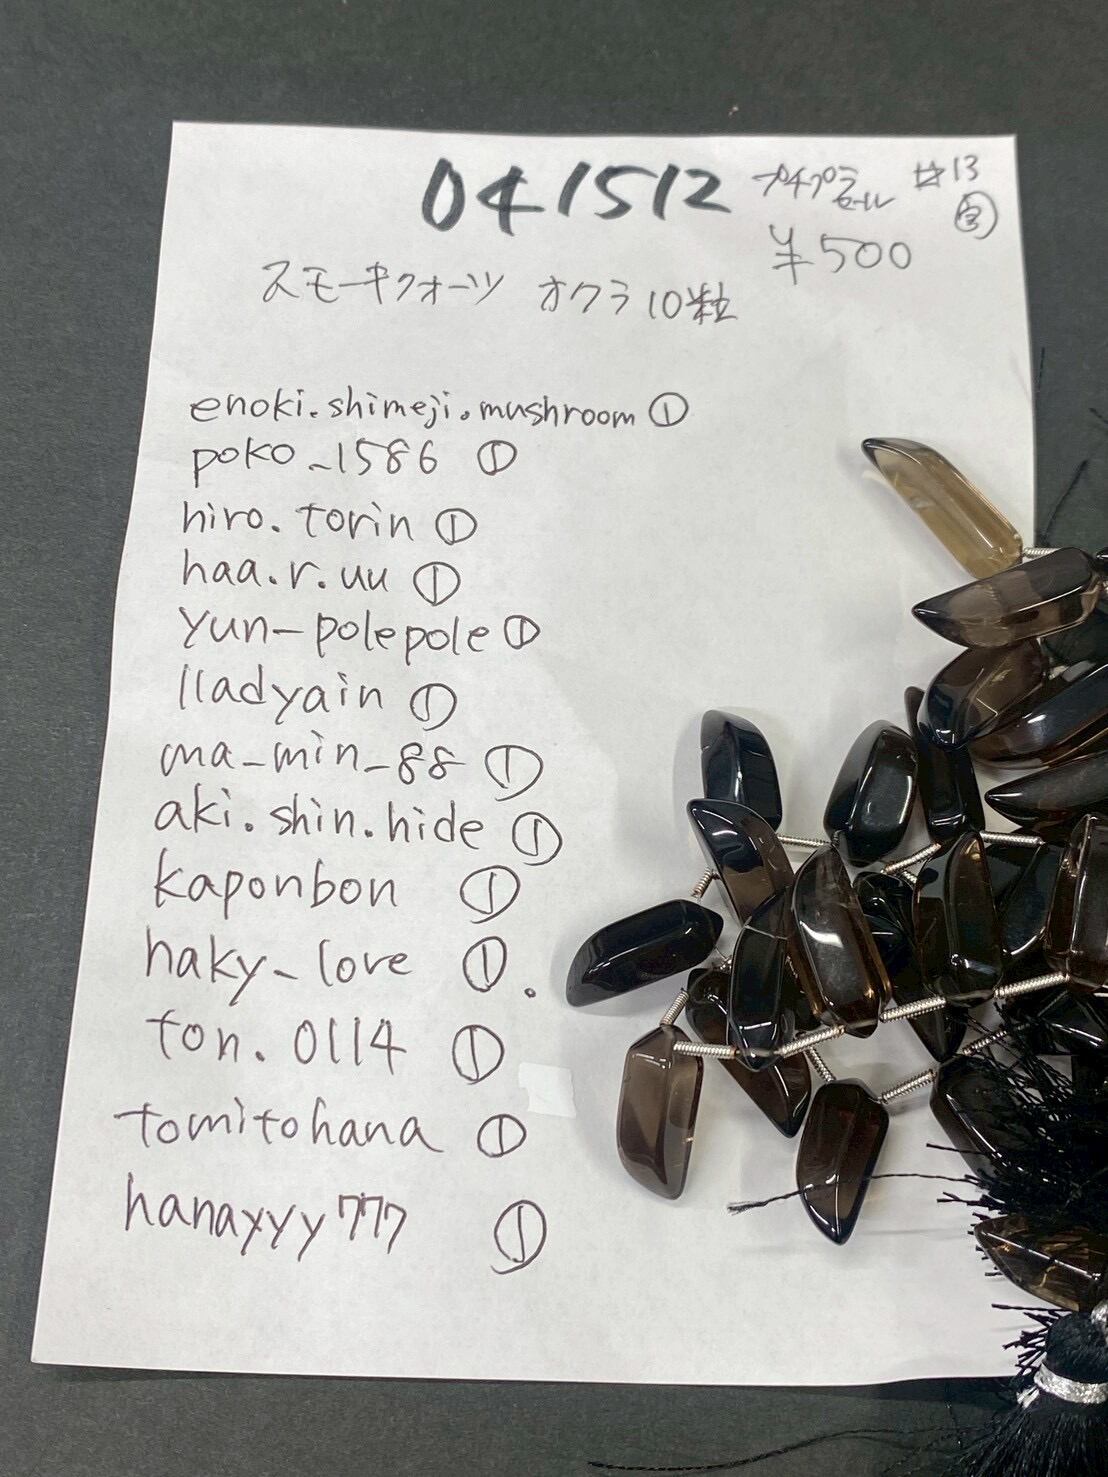 041512 プチプラセール #13
¥500
スモーキクォーツ オクラ 10粒
enoki.shimeji.mushroom ①
poko_1586 ①
hiro.torin ①
haa.r.uu ①
yun-polepole ①
lladyain ①
ma_min_88 ①
aki.shin.hide ①
kaponbon ①
haky_love ①.
ton.0114 ①
tomitohana ①
hanayyy777 ①